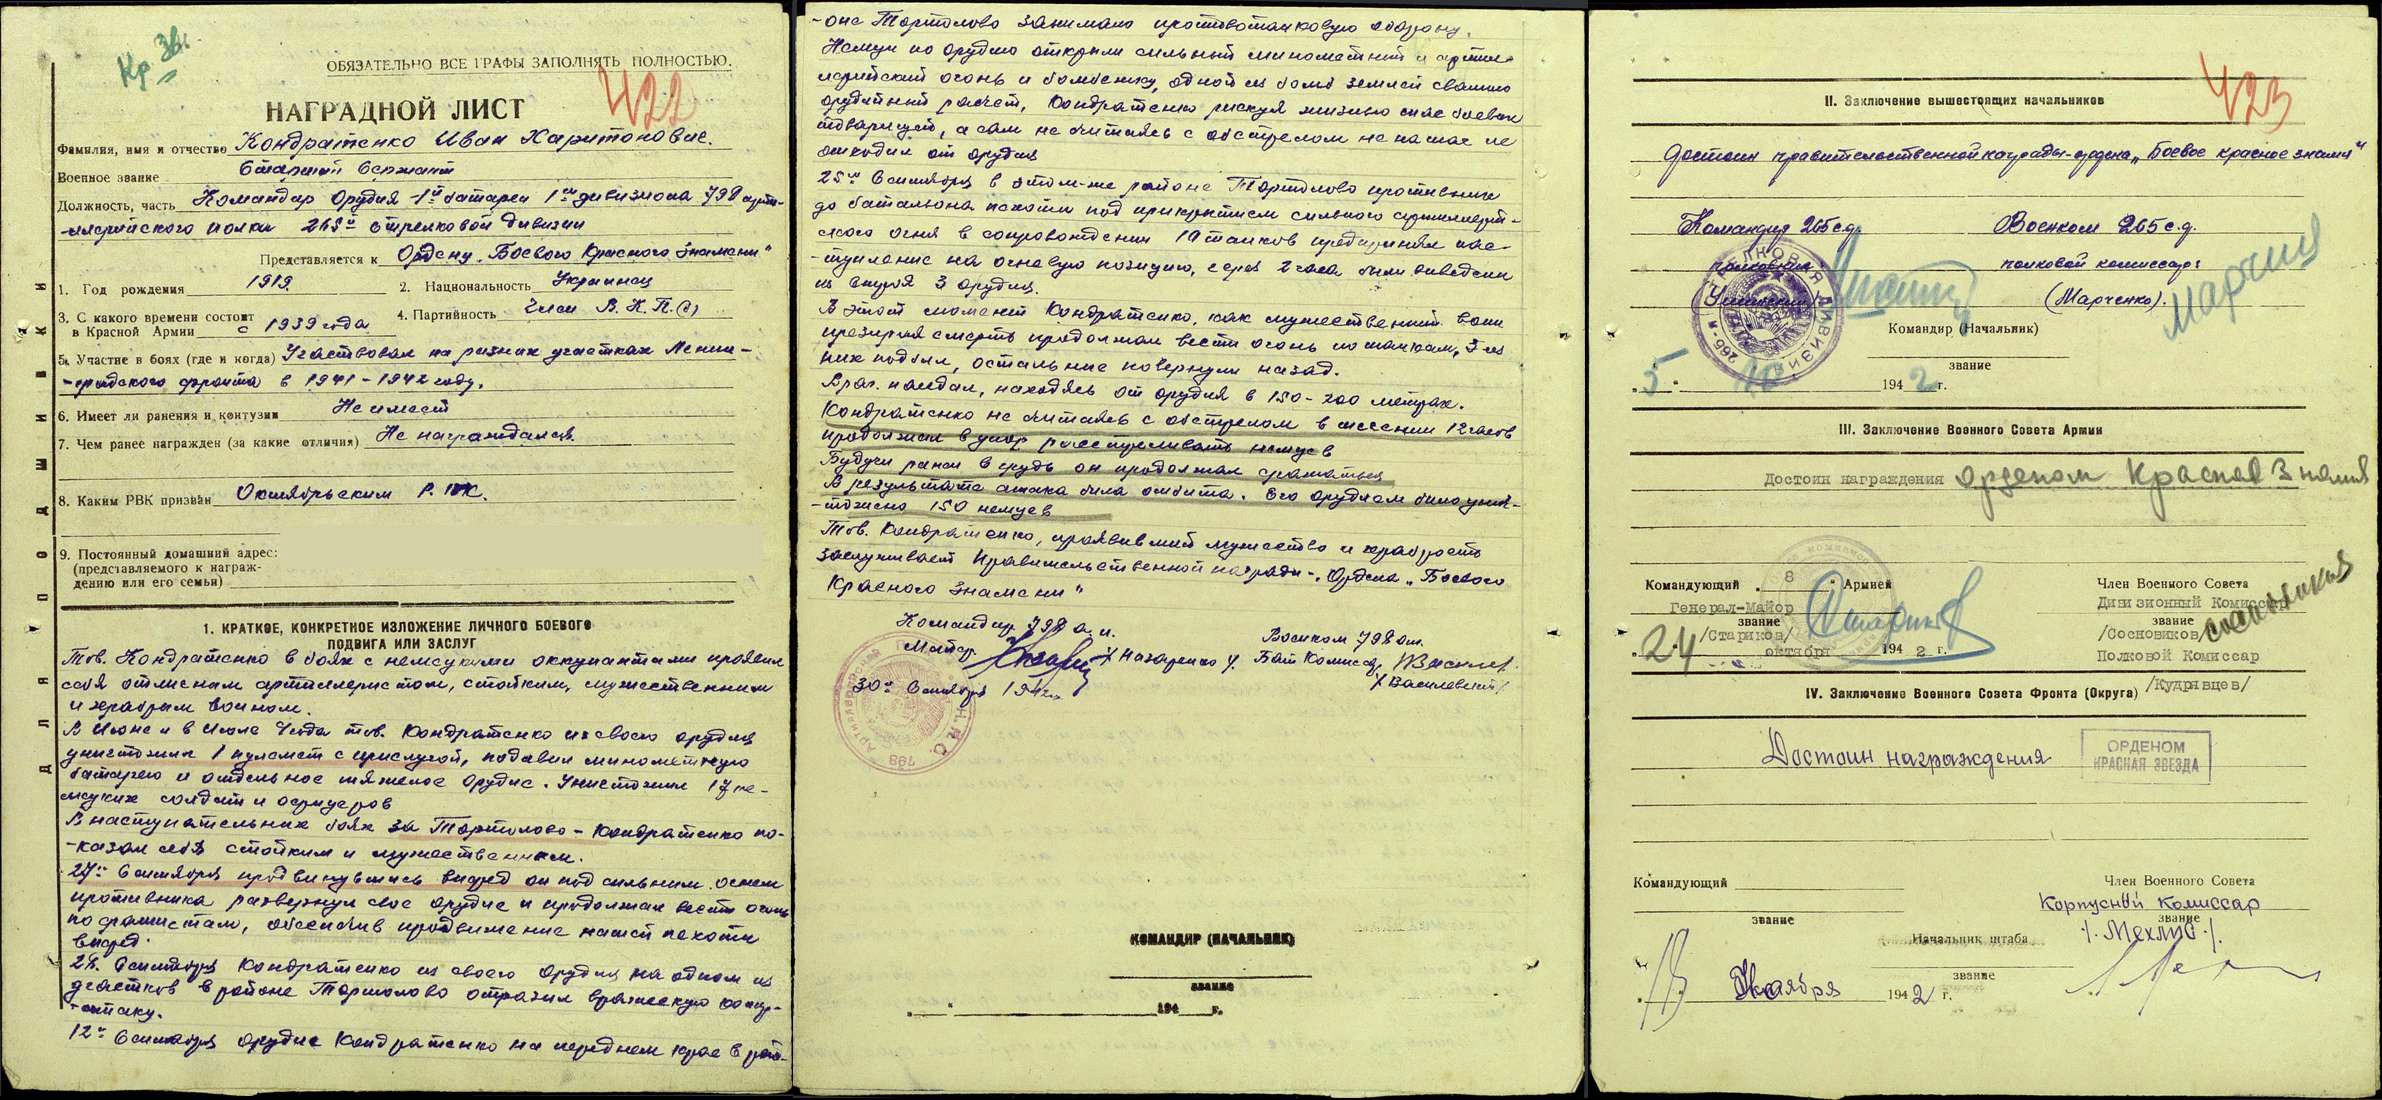 Кр Зв.
ОБЯЗАТЕЛЬНО ВСЕ ГРАФЫ ЗАПОЛНЯТЬ ПОЛНОСТЬЮ.
422
НАГРАДНОЙ ЛИСТ
Фамилия, имя и отчество Кондратенко Иван Харитонович.
Военное звание Старший Сержант
Должность, часть Командир Орудия 1й батареи 1го дивизиона 798 арти-
-лерийского полка 265й стрелковой дивизии
Представляется к Ордену „Боевого Красного Знамени"
1. Год рождения 1919. 2. Национальность Украинец
3. С какого времени состоит в Красной Армии с 1939 года 4. Партийность Член В.К.П.(б)
5. Участие в боях (где и когда) Участвовал на разных участках Ленин-
-градского фронта в 1941-1942 году.
6. Имеет ли ранения и контузии Не имеет
7. Чем ранее награжден (за какие отличия) Не награждался.
8. Каким РВК призван Октябрьским Р.В.К.
9. Постоянный домашний адрес:
(представляемого к награж-
дению или его семьи)
ДЛЯ ПОДШИВКИ
1. КРАТКОЕ, КОНКРЕТНОЕ ИЗЛОЖЕНИЕ ЛИЧНОГО БОЕВОГО
ПОДВИГА ИЛИ ЗАСЛУГ
Тов. Кондратенко в боях с немецкими оккупантами проявил
себя отличным артиллеристом, стойким, мужественным
и храбрым воином.
В Июне и в Июле 42 года тов. Кондратенко из своего орудия
уничтожил 1 пулемет с прислугой, подавил минометную
батарею и отдельное тяжелое орудие. Уничтожил 17 не-
мецких солдат и офицеров
В наступательных боях за Тортолово - Кондратенко по-
-казал себя стойким и мужественным.
сентября продвинувшись вперед он под сильным огнем
противника развернул свое орудие и продолжал вести огонь
по фашистам, обеспечив продвижение нашей пехоты
вперед.
сентября Кондратенко из своего орудия на одном из
участков в районе Тортолово отразил вражескую контр-
-атаку.
12го сентября орудие Кондратенко на переднем крае в рай-
-оне Тортолово занимало противотанковую оборону.
Немцы по орудию открыли сильный минометный и артил-
лерийский огонь и бомбежку, одной из бомб землей свалило
орудийный расчет, Кондратенко рискуя жизнью спас боевых
товарищей, а сам не считаясь с обстрелом не на шаг не
отходил от орудия
25го сентября в этом-же районе Тортолово противник
до батальона пехоты под прикрытием сильного артиллерий-
ского огня в сопровождении 19 танков предпринял нас-
-тупление на огневую позицию, через 2 часа были выведены
из строя 3 орудия.
В этот момент Кондратенко, как мужественный воин
презирая смерть продолжал вести огонь по танкам, 3 из
них подбил, остальные повернули назад.
Враг наседал, находясь от орудия в 150-200 метрах.
Кондратенко не считаясь с обстрелом в течении 12 часов
продолжал в упор расстреливать немцев
Будучи ранен в грудь он продолжал сражаться
В результате атака была отбита. Его орудием было унич-
-тожено 150 немцев
Тов. Кондратенко, проявивший мужество и храбрость
заслуживает Правительственной награды - Ордена „Боевого
Красного Знамени"
Командир 798 а.п. Военком 798 ап.
Майор /Назаренко/. Бат Комиссар
/Василевский/
30го Сентября 1942г.
КОМАНДИР (НАЧАЛЬНИК)
звание
„ " 194 г.
423
II. Заключение вышестоящих начальников
Достоин правительственной награды-ордена „Боевое красное знамя"
Командир 265 с.д. Военком 265 с.д.
полковник полковой комиссар:
/Ушинский/ (Марченко).
Командир (Начальник)
звание
„5" 10 1942 г.
III. Заключение Военного Совета Армии
Достоин награждения орденом Красное Знамя
Командующий 8 Армией Член Военного Совета
Генерал-Майор Дивизионный Комиссар
звание звание
/Стариков/ /Сосновиков/
„24" октября 1942 г. Полковой Комиссар
/Кудрявцев/
IV. Заключение Военного Совета Фронта (Округа)
Достоин награждения ОРДЕНОМ
КРАСНАЯ ЗВЕЗДА
Командующий Член Военного Совета
Корпусной Комиссар
звание звание
/Мехлис/.
Начальник штаба
звание
Ноября 1942 г.